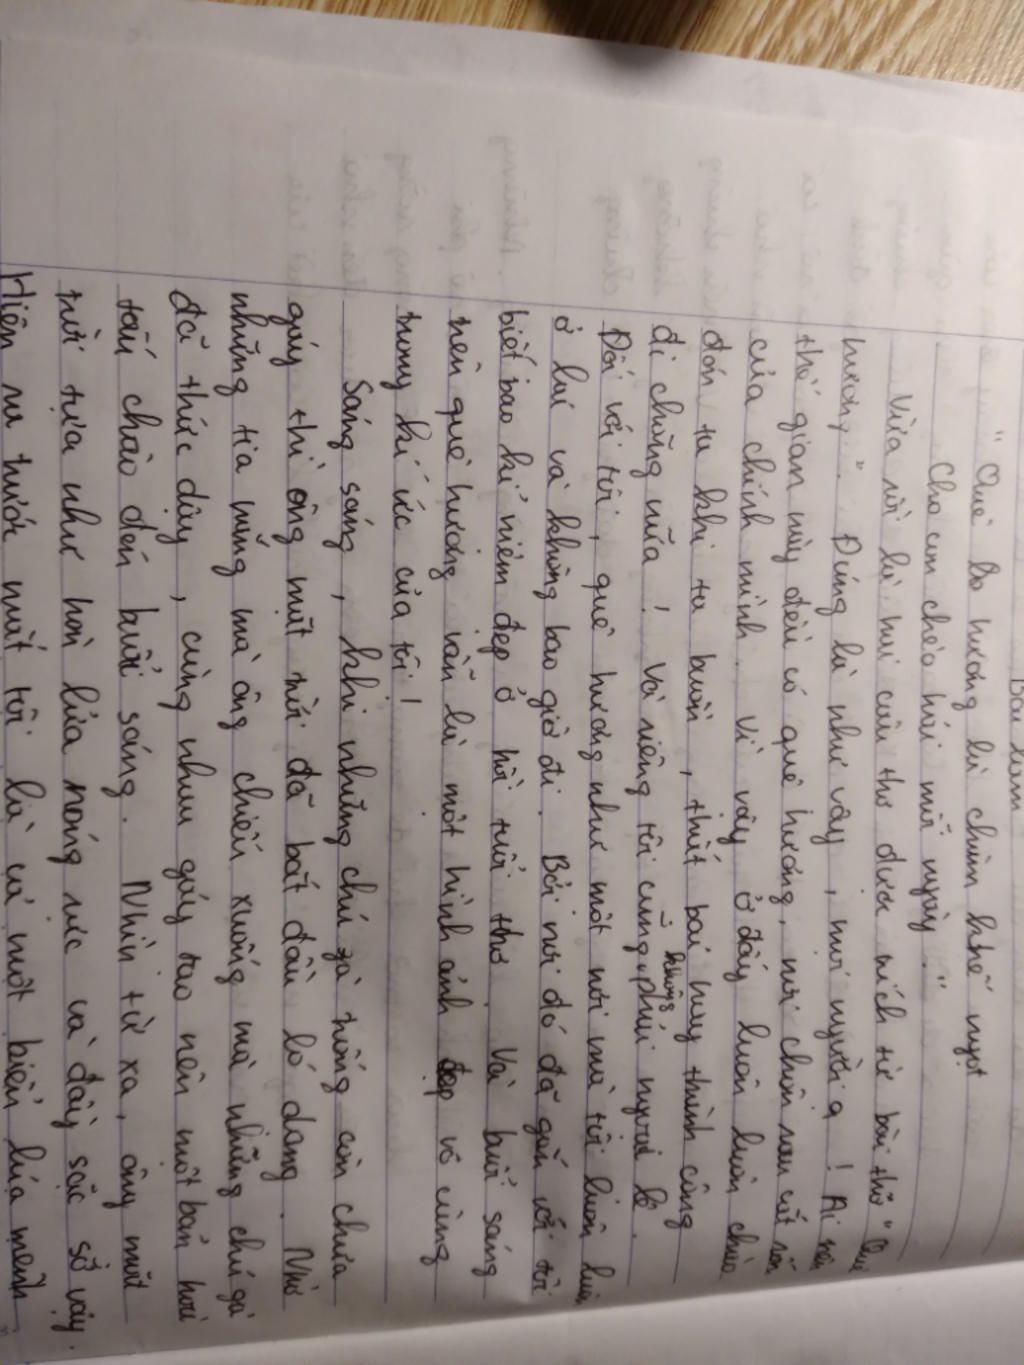 Bài làm
" Quê hương là chùm khế ngọt
Cho con chèo hái mỗi ngày. "
Vừa rồi là hai câu thơ được trích từ bài thơ " Quê
hương ". Đúng là như vậy , mọi người ạ ! Ai trên
thế gian này đều có quê hương, nơi chôn rau cắt rốn
của chính mình. Vì vậy ở đây luôn luôn chào
đón ta khi ta buồn , thất bại hay thành công
đi chăng nữa ! Và riêng tôi cũng không phải ngoại lệ.
Đối với tôi , quê hương như một nơi mà tôi luôn luôn
ở lại và không bao giờ đi. Bởi nơi đó đã gắn với tôi
biết bao kỉ niệm đẹp ở hồi tuổi thơ. Và buổi sáng
trên quê hương vẫn là một hình ảnh đẹp vô cùng
trong kí ức của tôi !
Sáng sáng , khi những chú gà trống còn chưa
gáy thì ông mặt trời đã bắt đầu ló dạng . Nhờ
những tia nắng mà ông chiếu xuống mà những chú gà
đã thức dậy , cùng nhau gáy tạo nên một bản hoà
tấu chào đón buổi sáng. Nhìn từ xa, ông mặt
trời tựa như hòn lửa nóng rực và đầy sặc sỡ vậy.
Hiện ra trước mắt tôi là cả một biển lúa mênh